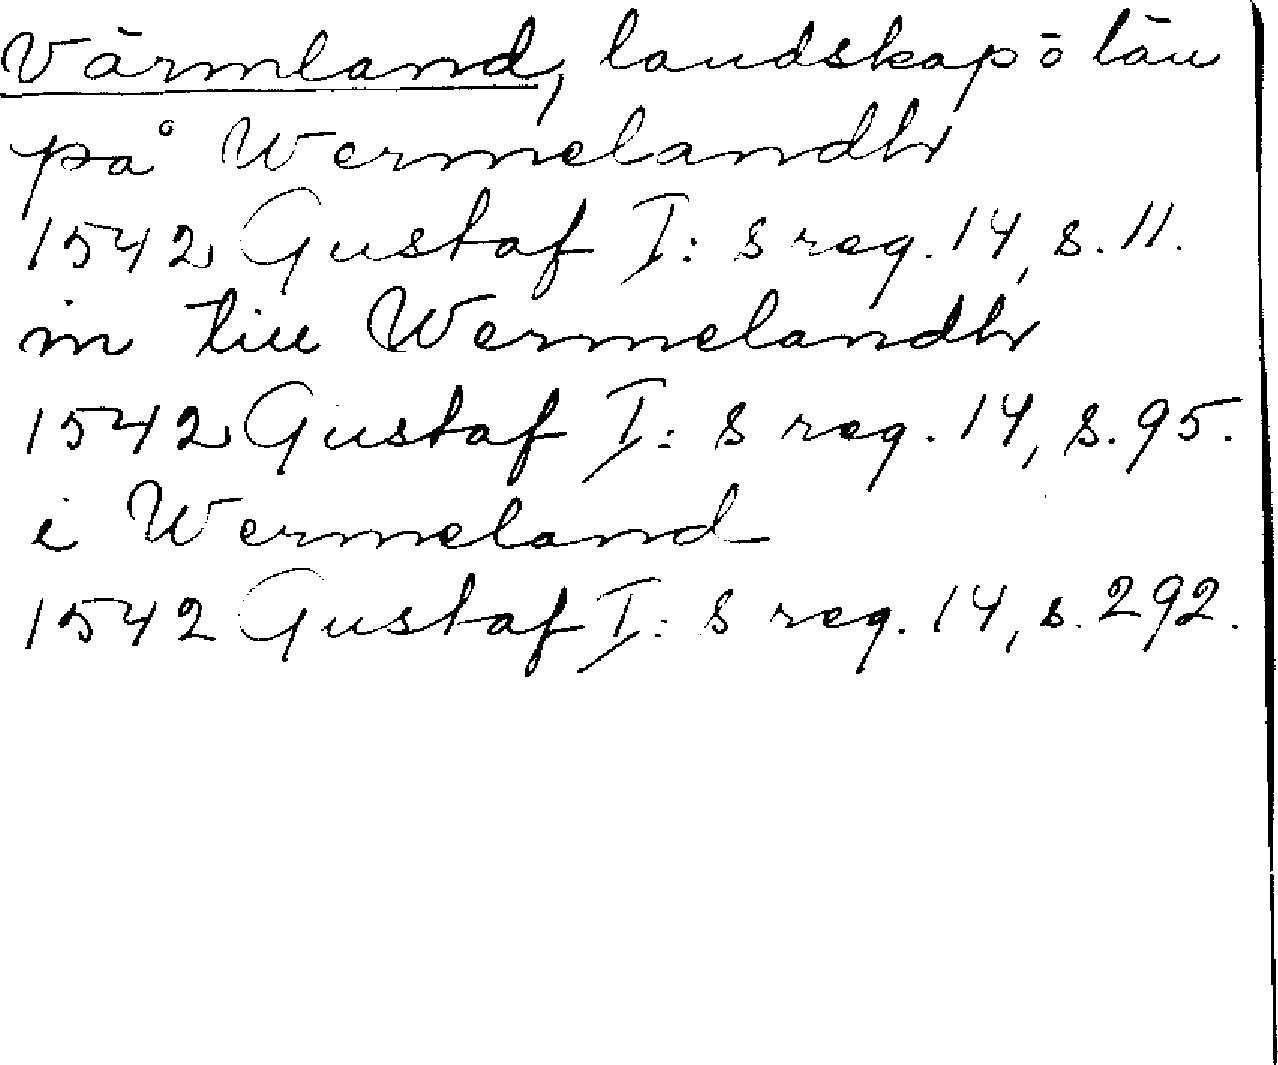 Värmland, landskap o län
på Wermelandh
1542 Gustaf I: s reg. 14, s. 11.
in till Wermelandh
1542 Gustaf I: s reg. 14, s. 95.
i Wermeland
1542 Gustaf I: s reg. 14, s. 292.